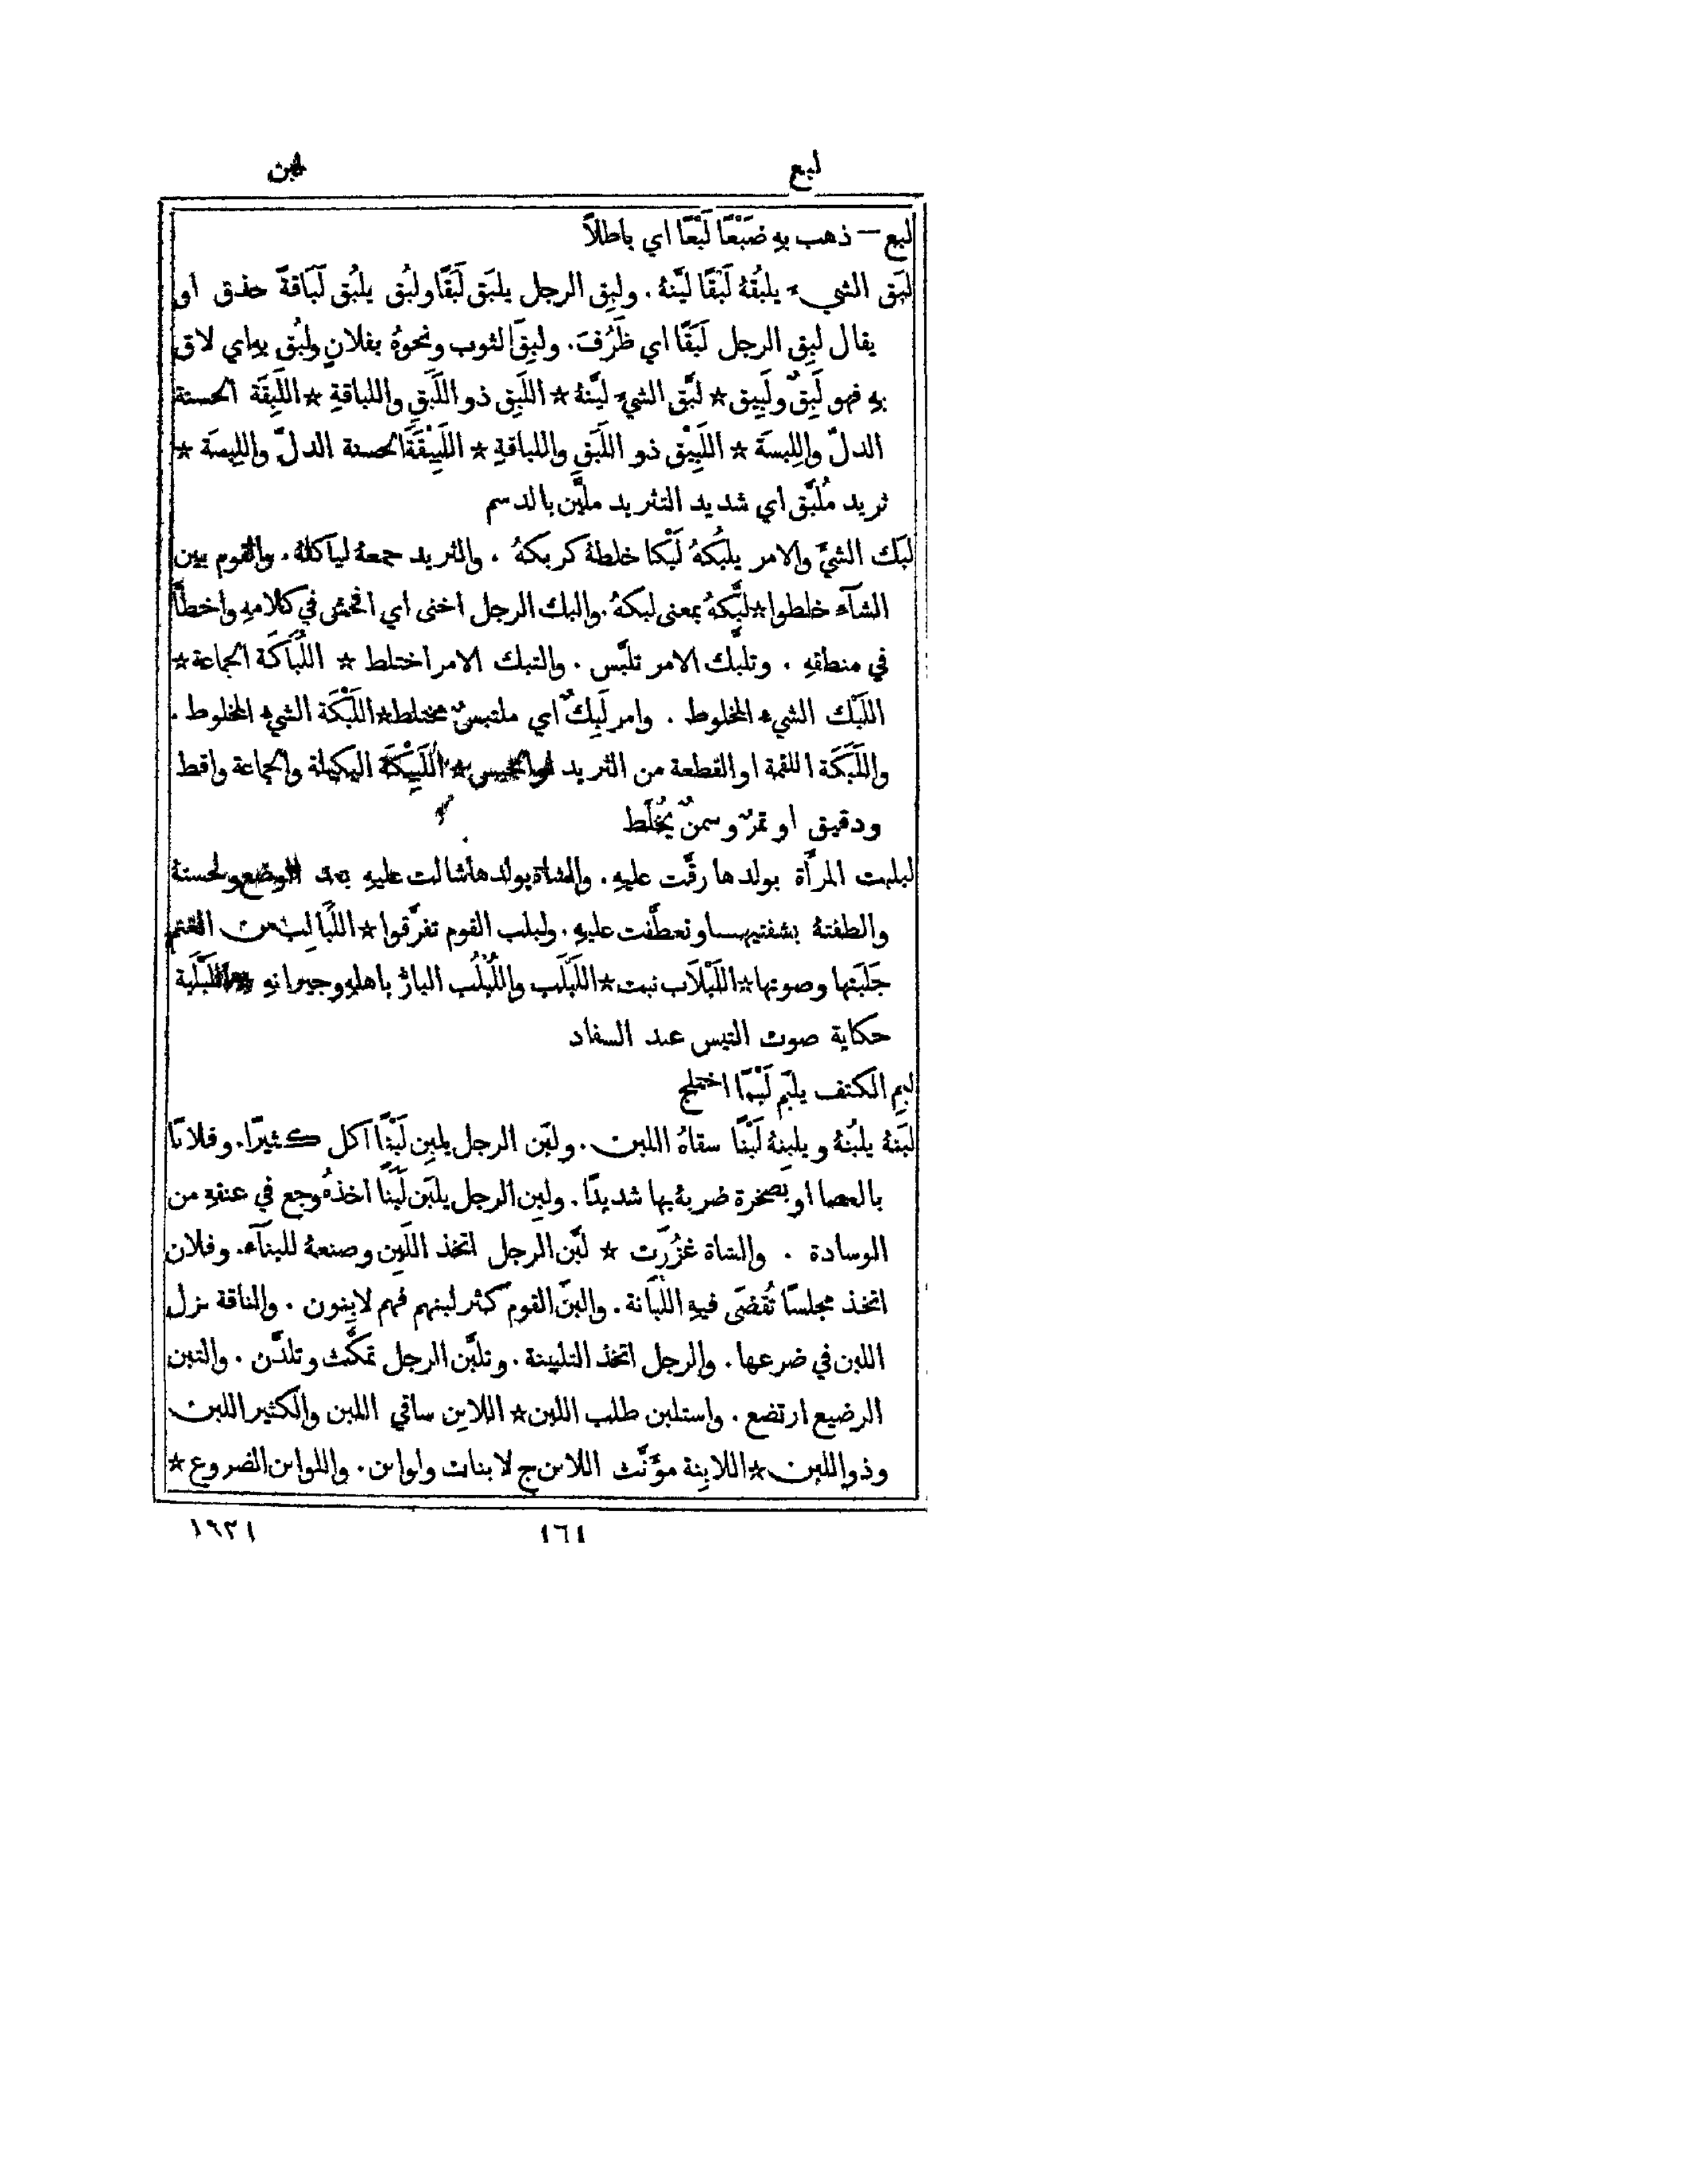 لبع
لبن
لبع — ذهب بهِ ضَبْعًا لَبْعًا اي باطلاً
لبَق الشيء يلبُقهُ لَبْقًا ليَّنهُ. ولبِق الرجل يلبَق لَبَقًا ولبُق يلبُق لَبَاقةً حذق او
يقال لبِق الرجل لَبَقًا اي ظَرُفَ. ولبِقَ الثوب ونحوهُ بفلانٍ ولبُق بهِ اي لاق
بهِ فهو لَبِقٌ ولَبِيق * لبَّق الشيء ليَّنهُ * اللَبِق ذو اللَبَقِ واللباقةِ * اللَبِقَة الحسنة
الدلّ واللِبسَة * اللَبِيْق ذو اللَبَقِ واللباقةِ * اللَبِيْقَة الحسنة الدلّ واللِبسَة *
ثريد مُلبَّق اي شديد التثريد مليَّن بالدسم
لبَك الشيَّ والامر يلبُكهُ لَبْكا خلطهُ كربكهُ . والثريد جمعهُ لياكلهُ. والقوم بين
الشآء خلطوا * لبَّكهُ بمعنى لبكهُ. والبك الرجل اخنى اي افحش في كلامهِ واخطأَ
في منطقهِ . وتلبَّك الامر تلبَّس . والتبك الامر اختلط * اللُبَاكَة الجماعة *
اللَبْك الشيء المخلوط . وامر لَبِكٌ اي ملتبسٌ مختلط * اللَبْكَة الشيء المخلوط.
واللَبَكَة اللقمة او القطعة من الثريد او الحيس * اللَبِيْكَة البكيلة والجماعة واقط
ودقيق او تمرٌ وسمنٌ يُخلَط
لبلبت المرأَة بولدها رقَّت عليهِ. والشاة بولدها شالت عليهِ بعد الوضع ولحستهُ
والطفتهُ بشفتيها وتعطَّفت عليهِ. ولبلب القوم تفرَّقوا * اللَبَالِب من الغنم
جَلَبَتها وصوتها * اللَبْلاَب نبت * اللَبْلَب واللُبْلُب البارُّ باهلهِ وجيرانهِ * اللَبْلَبة
حكاية صوت التيس عند السفاد
لبِم الكتف يلبَم لَبْمًا اختلج
لبَنهُ يلبُنهُ ويلبِنهُ لَبْنًا سقاهُ اللبن. ولبَن الرجل يلبِن لَبْنًا اكل كثيرًا. وفلانًا
بالعصا او بصخرة ضربهُ بها شديدًا. ولبِن الرجل يلبَن لَبَنًا اخذهُ وجع في عنقهِ من
الوسادة . والشاة غزُرَت * لبَّن الرجل اتخذ اللَبِن وصنعهُ للبنآء. وفلان
اتخذ مجلسًا تُقضَى فيهِ اللُبَانة. والبنَ القوم كثر لبنهم فهم لابِنون . والناقة نزل
اللبن في ضرعها. والرجل اتخذ التلبينة. وتلبَّن الرجل تمكَّث وتلدَّن. والتبن
الرضيع ارتضع. واستلبن طلب اللبن * اللابِن ساقي اللبن والكثير اللبن
وذو اللبن * اللابِنة مؤَنَّث اللابن ج لابنات ولوابن. واللوابن الضروع *
١٦١
١٩٢١